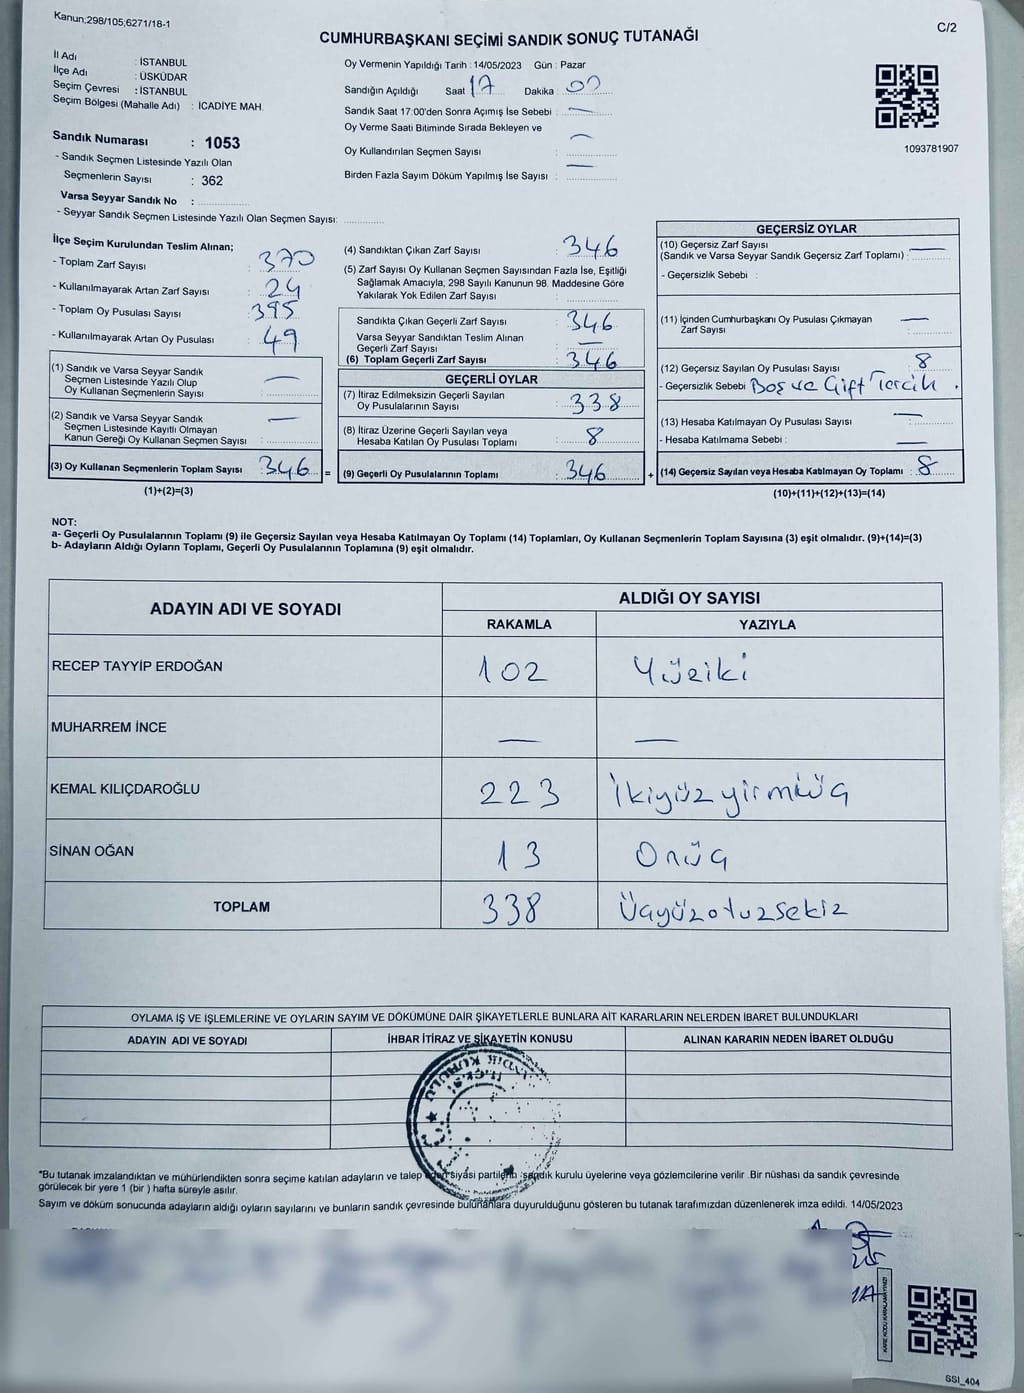 Kanun;298/105;6271/18-1
C/2
CUMHURBAŞKANI SEÇİMİ SANDIK SONUÇ TUTANAĞI
İl Adı : İSTANBUL
İlçe Adı : ÜSKÜDAR
Seçim Çevresi : İSTANBUL
Seçim Bölgesi (Mahalle Adı) : İCADİYE MAH.
Oy Vermenin Yapıldığı Tarih : 14/05/2023 Gün : Pazar
Sandığın Açıldığı Saat 17 Dakika 00
Sandık Saat 17:00'den Sonra Açımış İse Sebebi : —
Oy Verme Saati Bitiminde Sırada Bekleyen ve
Oy Kullandırılan Seçmen Sayısı : —
Birden Fazla Sayım Döküm Yapılmış İse Sayısı : —
1093781907
Sandık Numarası : 1053
- Sandık Seçmen Listesinde Yazılı Olan
Seçmenlerin Sayısı : 362
Varsa Seyyar Sandık No :
- Seyyar Sandık Seçmen Listesinde Yazılı Olan Seçmen Sayısı:
İlçe Seçim Kurulundan Teslim Alınan;
- Toplam Zarf Sayısı : 370
- Kullanılmayarak Artan Zarf Sayısı : 24
- Toplam Oy Pusulası Sayısı : 395
- Kullanılmayarak Artan Oy Pusulası : 49
(1) Sandık ve Varsa Seyyar Sandık
Seçmen Listesinde Yazılı Olup
Oy Kullanan Seçmenlerin Sayısı : —
(2) Sandık ve Varsa Seyyar Sandık
Seçmen Listesinde Kayıtlı Olmayan
Kanun Gereği Oy Kullanan Seçmen Sayısı : —
(3) Oy Kullanan Seçmenlerin Toplam Sayısı : 346 =
(1)+(2)=(3)
(4) Sandıktan Çıkan Zarf Sayısı : 346
(5) Zarf Sayısı Oy Kullanan Seçmen Sayısından Fazla İse, Eşitliği
Sağlamak Amacıyla, 298 Sayılı Kanunun 98. Maddesine Göre
Yakılarak Yok Edilen Zarf Sayısı :
Sandıkta Çıkan Geçerli Zarf Sayısı : 346
Varsa Seyyar Sandıktan Teslim Alınan
Geçerli Zarf Sayısı : —
(6) Toplam Geçerli Zarf Sayısı : 346
GEÇERLİ OYLAR
(7) İtiraz Edilmeksizin Geçerli Sayılan
Oy Pusulalarının Sayısı : 338
(8) İtiraz Üzerine Geçerli Sayılan veya
Hesaba Katılan Oy Pusulası Toplamı : 8
(9) Geçerli Oy Pusulalarının Toplamı : 346 +
GEÇERSİZ OYLAR
(10) Geçersiz Zarf Sayısı
(Sandık ve Varsa Seyyar Sandık Geçersiz Zarf Toplamı) : —
- Geçersizlik Sebebi :
(11) İçinden Cumhurbaşkanı Oy Pusulası Çıkmayan
Zarf Sayısı : —
(12) Geçersiz Sayılan Oy Pusulası Sayısı : 8
- Geçersizlik Sebebi : Boş ve Çift Tercih .
(13) Hesaba Katılmayan Oy Pusulası Sayısı : —
- Hesaba Katılmama Sebebi : —
(14) Geçersiz Sayılan veya Hesaba Katılmayan Oy Toplamı : 8
(10)+(11)+(12)+(13)=(14)
NOT:
a- Geçerli Oy Pusulalarının Toplamı (9) ile Geçersiz Sayılan veya Hesaba Katılmayan Oy Toplamı (14) Toplamları, Oy Kullanan Seçmenlerin Toplam Sayısına (3) eşit olmalıdır. (9)+(14)=(3)
b- Adayların Aldığı Oyların Toplamı, Geçerli Oy Pusulalarının Toplamına (9) eşit olmalıdır.
ADAYIN ADI VE SOYADI ALDIĞI OY SAYISI
RAKAMLA YAZIYLA
RECEP TAYYİP ERDOĞAN 102 Yüziki
MUHARREM İNCE — —
KEMAL KILIÇDAROĞLU 223 İkiyüz yirmiüç
SİNAN OĞAN 13 Onüç
TOPLAM 338 Üçyüzotuzsekiz
OYLAMA İŞ VE İŞLEMLERİNE VE OYLARIN SAYIM VE DÖKÜMÜNE DAİR ŞİKAYETLERLE BUNLARA AİT KARARLARIN NELERDEN İBARET BULUNDUKLARI
ADAYIN ADI VE SOYADI İHBAR İTİRAZ VE ŞİKAYETİN KONUSU ALINAN KARARIN NEDEN İBARET OLDUĞU
*Bu tutanak imzalandıktan ve mühürlendikten sonra seçime katılan adayların ve talep eden siyasi partilerin sandık kurulu üyelerine veya gözlemcilerine verilir Bir nüshası da sandık çevresinde
görülecek bir yere 1 (bir ) hafta süreyle asılır.
Sayım ve döküm sonucunda adayların aldığı oyların sayılarını ve bunların sandık çevresinde bulunanlara duyurulduğunu gösteren bu tutanak tarafımızdan düzenlenerek imza edildi. 14/05/2023
SSI_404